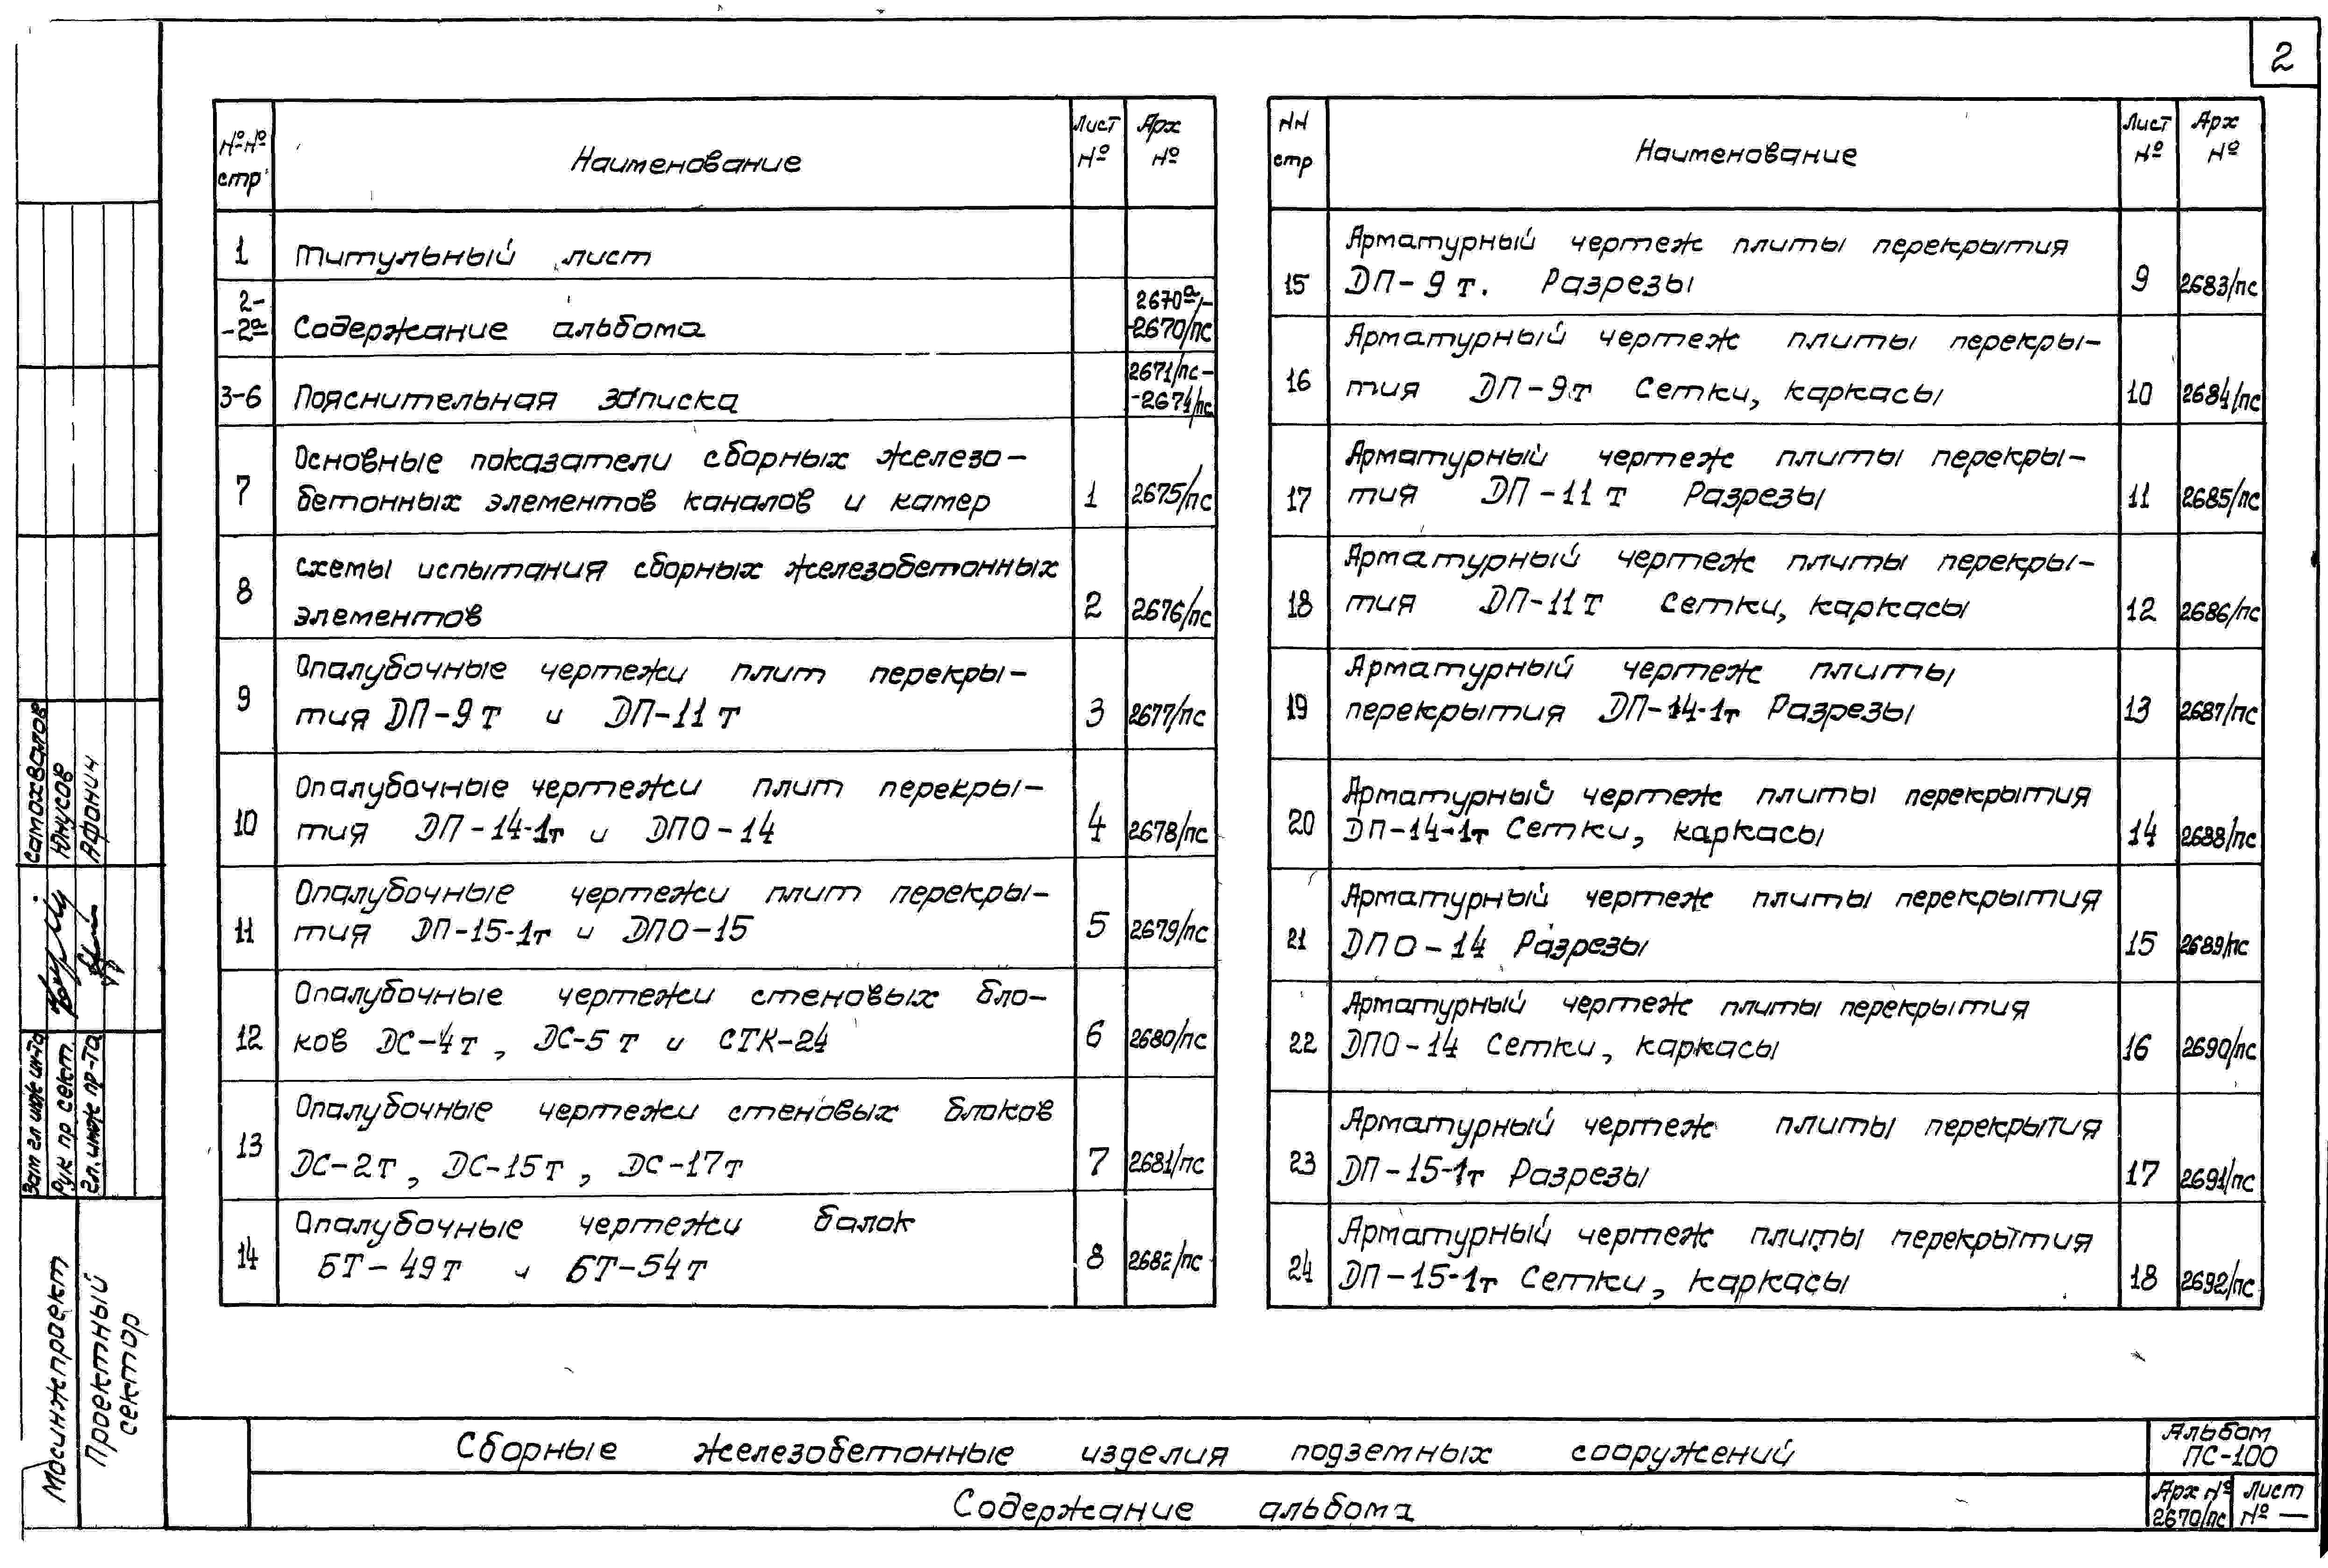 2
№№ стр Наименование Лист № Арх №
1 Титульный лист
2- -2а Содержание альбома 2670а/- -2670/пс
3-6 Пояснительная записка 2671/пс- -2674/пс
Основные показатели сборных железо-
7 бетонных элементов каналов и камер 1 2675/пс
Схемы испытания сборных железобетонных
8 элементов 2 2676/пс
Опалубочные чертежи плит перекры-
9 тия ДП-9т и ДП-11т 3 2677/пс
Опалубочные чертежи плит перекры-
10 тия ДП-14-1т и ДПО-14 4 2678/пс
Опалубочные чертежи плит перекры-
11 тия ДП-15-1т и ДПО-15 5 2679/пс
Опалубочные чертежи стеновых бло-
12 ков ДС-4т, ДС-5т и СТК-24 6 2680/пс
Опалубочные чертежи стеновых блоков
13 ДС-2т, ДС-15т, ДС-17т 7 2681/пс
Опалубочные чертежи балок
14 БТ-49т и БТ-54т 8 2682/пс
НН стр Наименование Лист № Арх №
Арматурный чертеж плиты перекрытия
15 ДП-9т. Разрезы 9 2683/пс
Арматурный чертеж плиты перекры-
16 тия ДП-9т Сетки, каркасы 10 2684/пс
Арматурный чертеж плиты перекры-
17 тия ДП-11т Разрезы 11 2685/пс
Арматурный чертеж плиты перекры-
18 тия ДП-11т Сетки, каркасы 12 2686/пс
Арматурный чертеж плиты
19 перекрытия ДП-14-1т Разрезы 13 2687/пс
Арматурный чертеж плиты перекрытия
20 ДП-14-1т Сетки, каркасы 14 2688/пс
Арматурный чертеж плиты перекрытия
21 ДПО-14 Разрезы 15 2689/пс
Арматурный чертеж плиты перекрытия
22 ДПО-14 Сетки, каркасы 16 2690/пс
Арматурный чертеж плиты перекрытия
23 ДП-15-1т Разрезы 17 2691/пс
Арматурный чертеж плиты перекрытия
24 ДП-15-1т Сетки, каркасы 18 2692/пс
Самохвалов
Юнусов
Афонич
Зам гл инж ин-та
Рук пр сект.
Гл. инж пр-та
Мосинжпроект
Проектный
сектор
Сборные железобетонные изделия подземных сооружений
Альбом
ПС-100
Содержание альбома
Арх № Лист
2670/пс № —